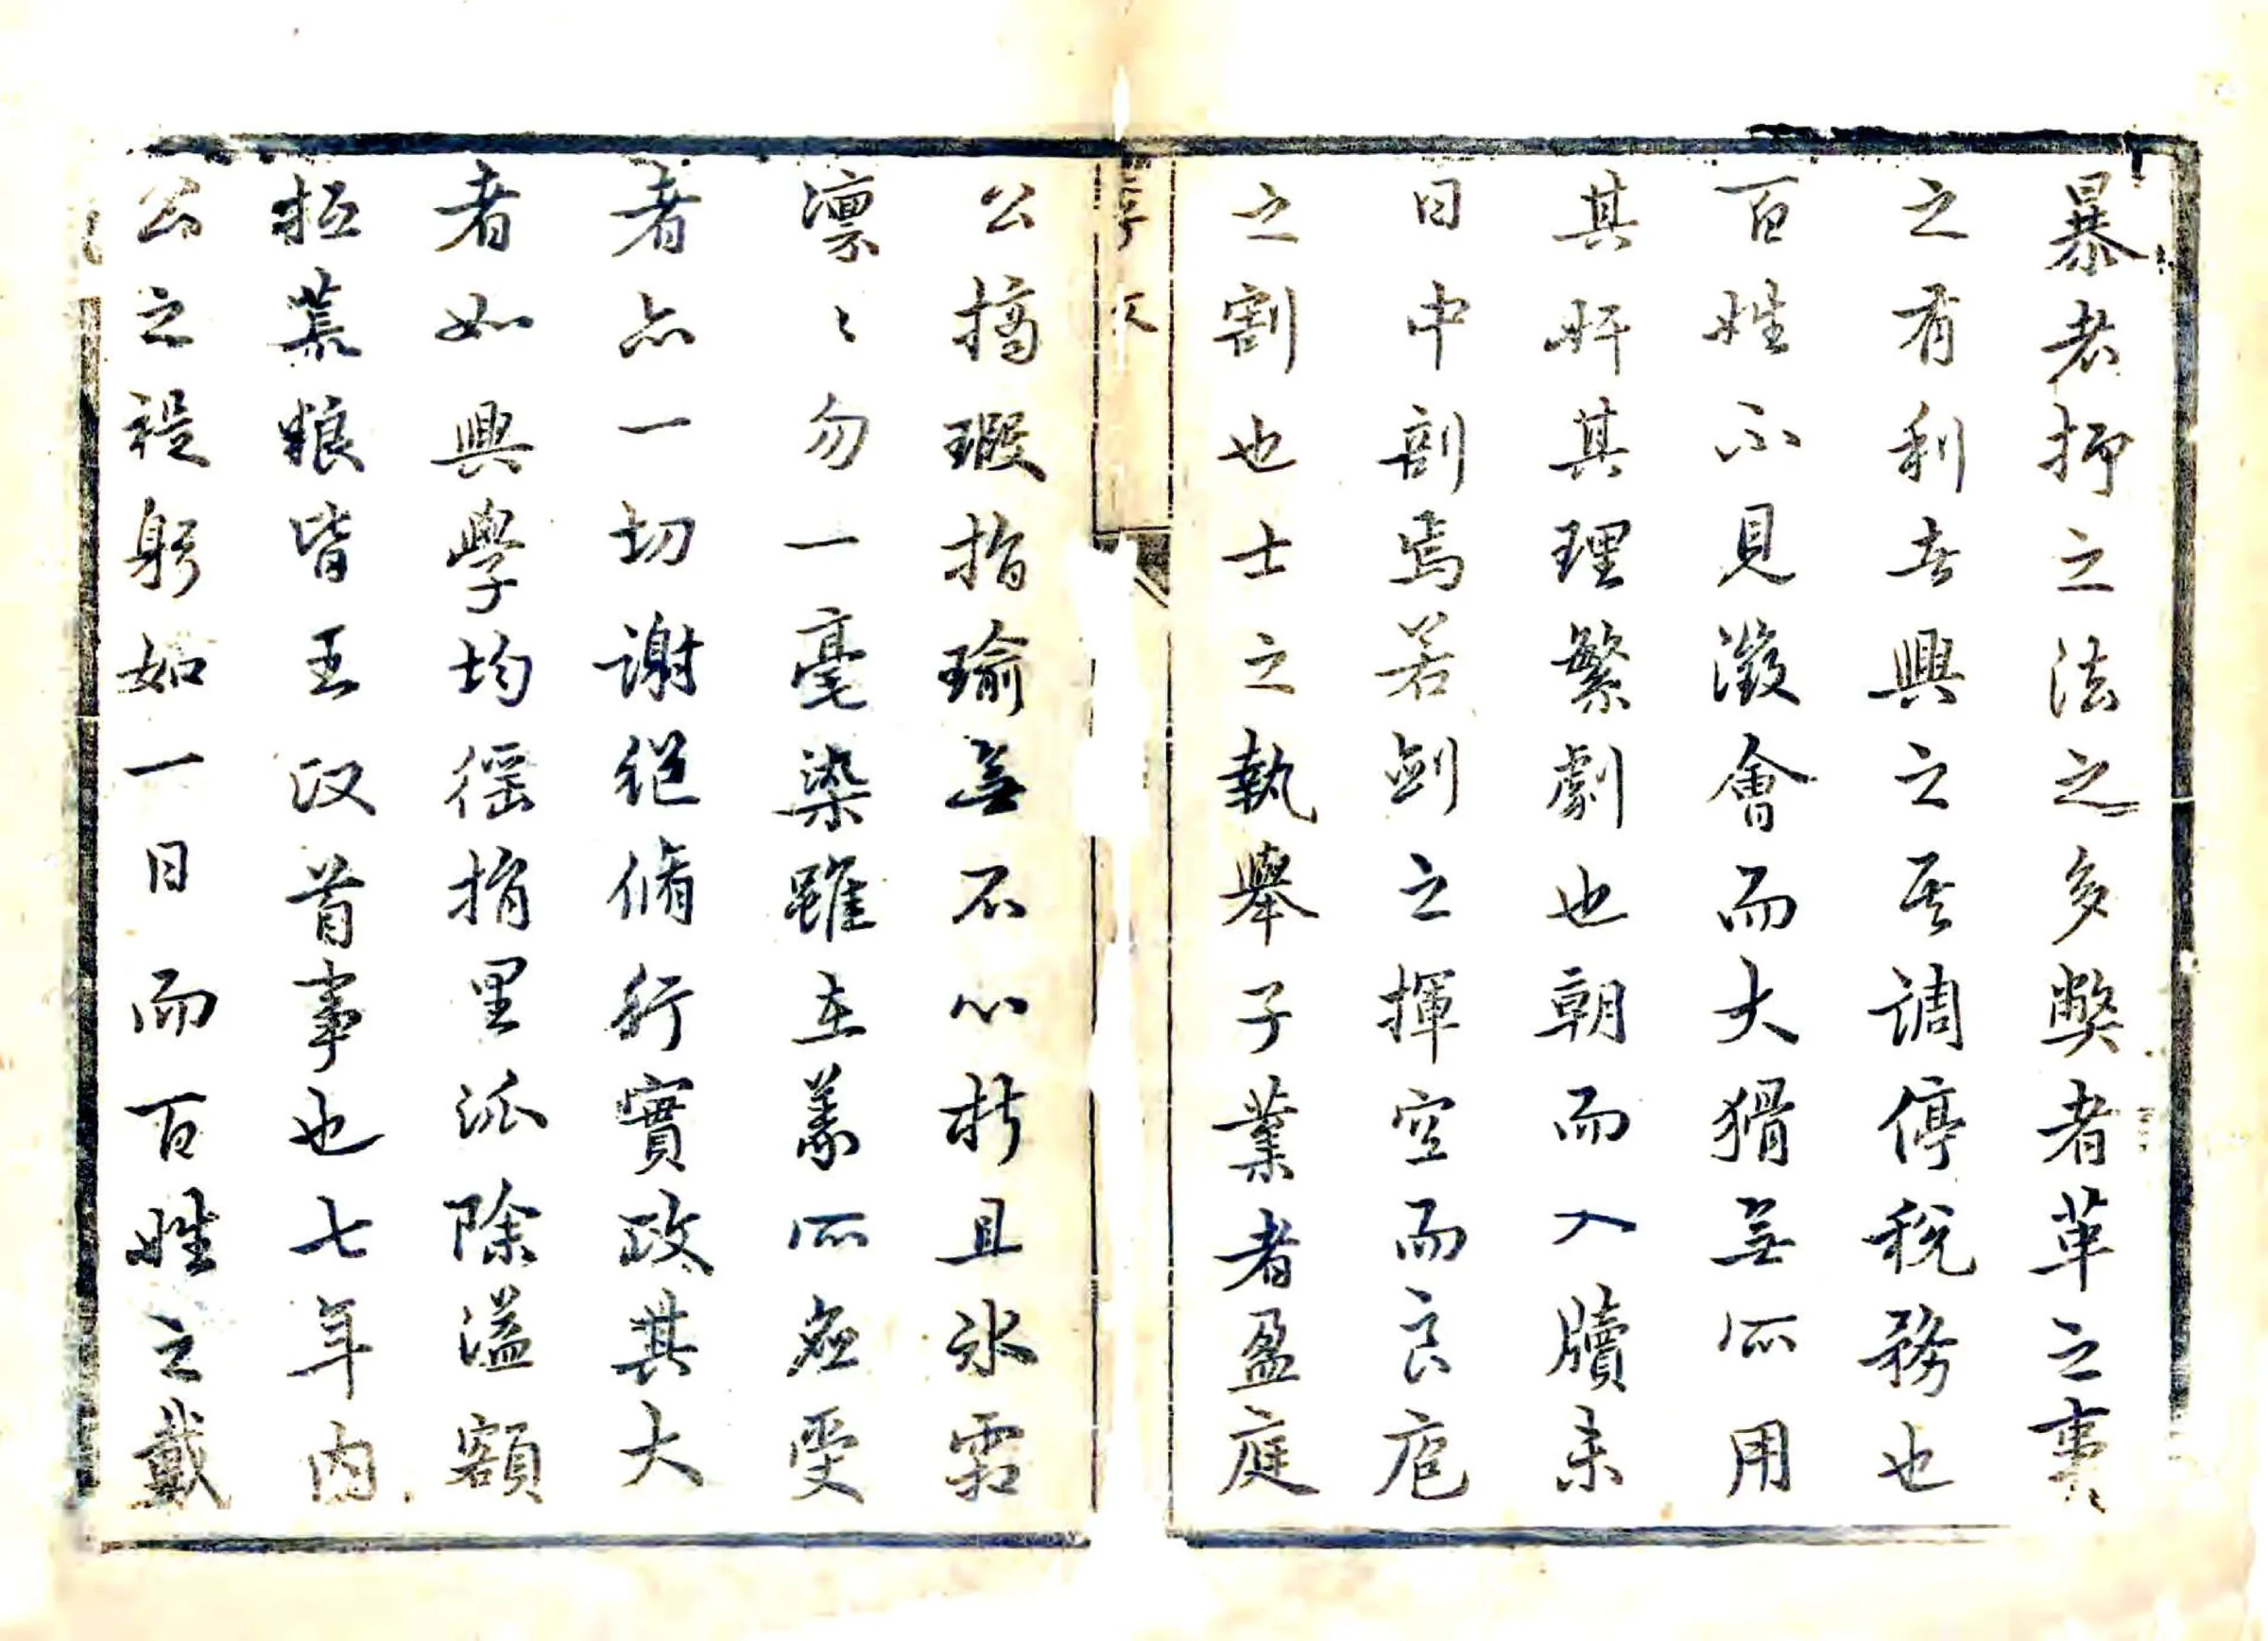 暴者抑之法之多弊者革之事
之有利者興之至調停稅務也
百姓不見激會而大猾無所用
其奸其理繁劇也朝而入牘未
日中剖焉若劍之揮空而良庖
之割也士之執舉子業者盈庭
公摘瑕指瑜無不心折且氷霜
凛〻勿一毫染雖至羨所應受
者亦一切謝絕脩行實政其大
者如興學均徭捐里派除溢額
拯荒粮皆王政首事也七年內
公之禔躬如一日而百姓之戴